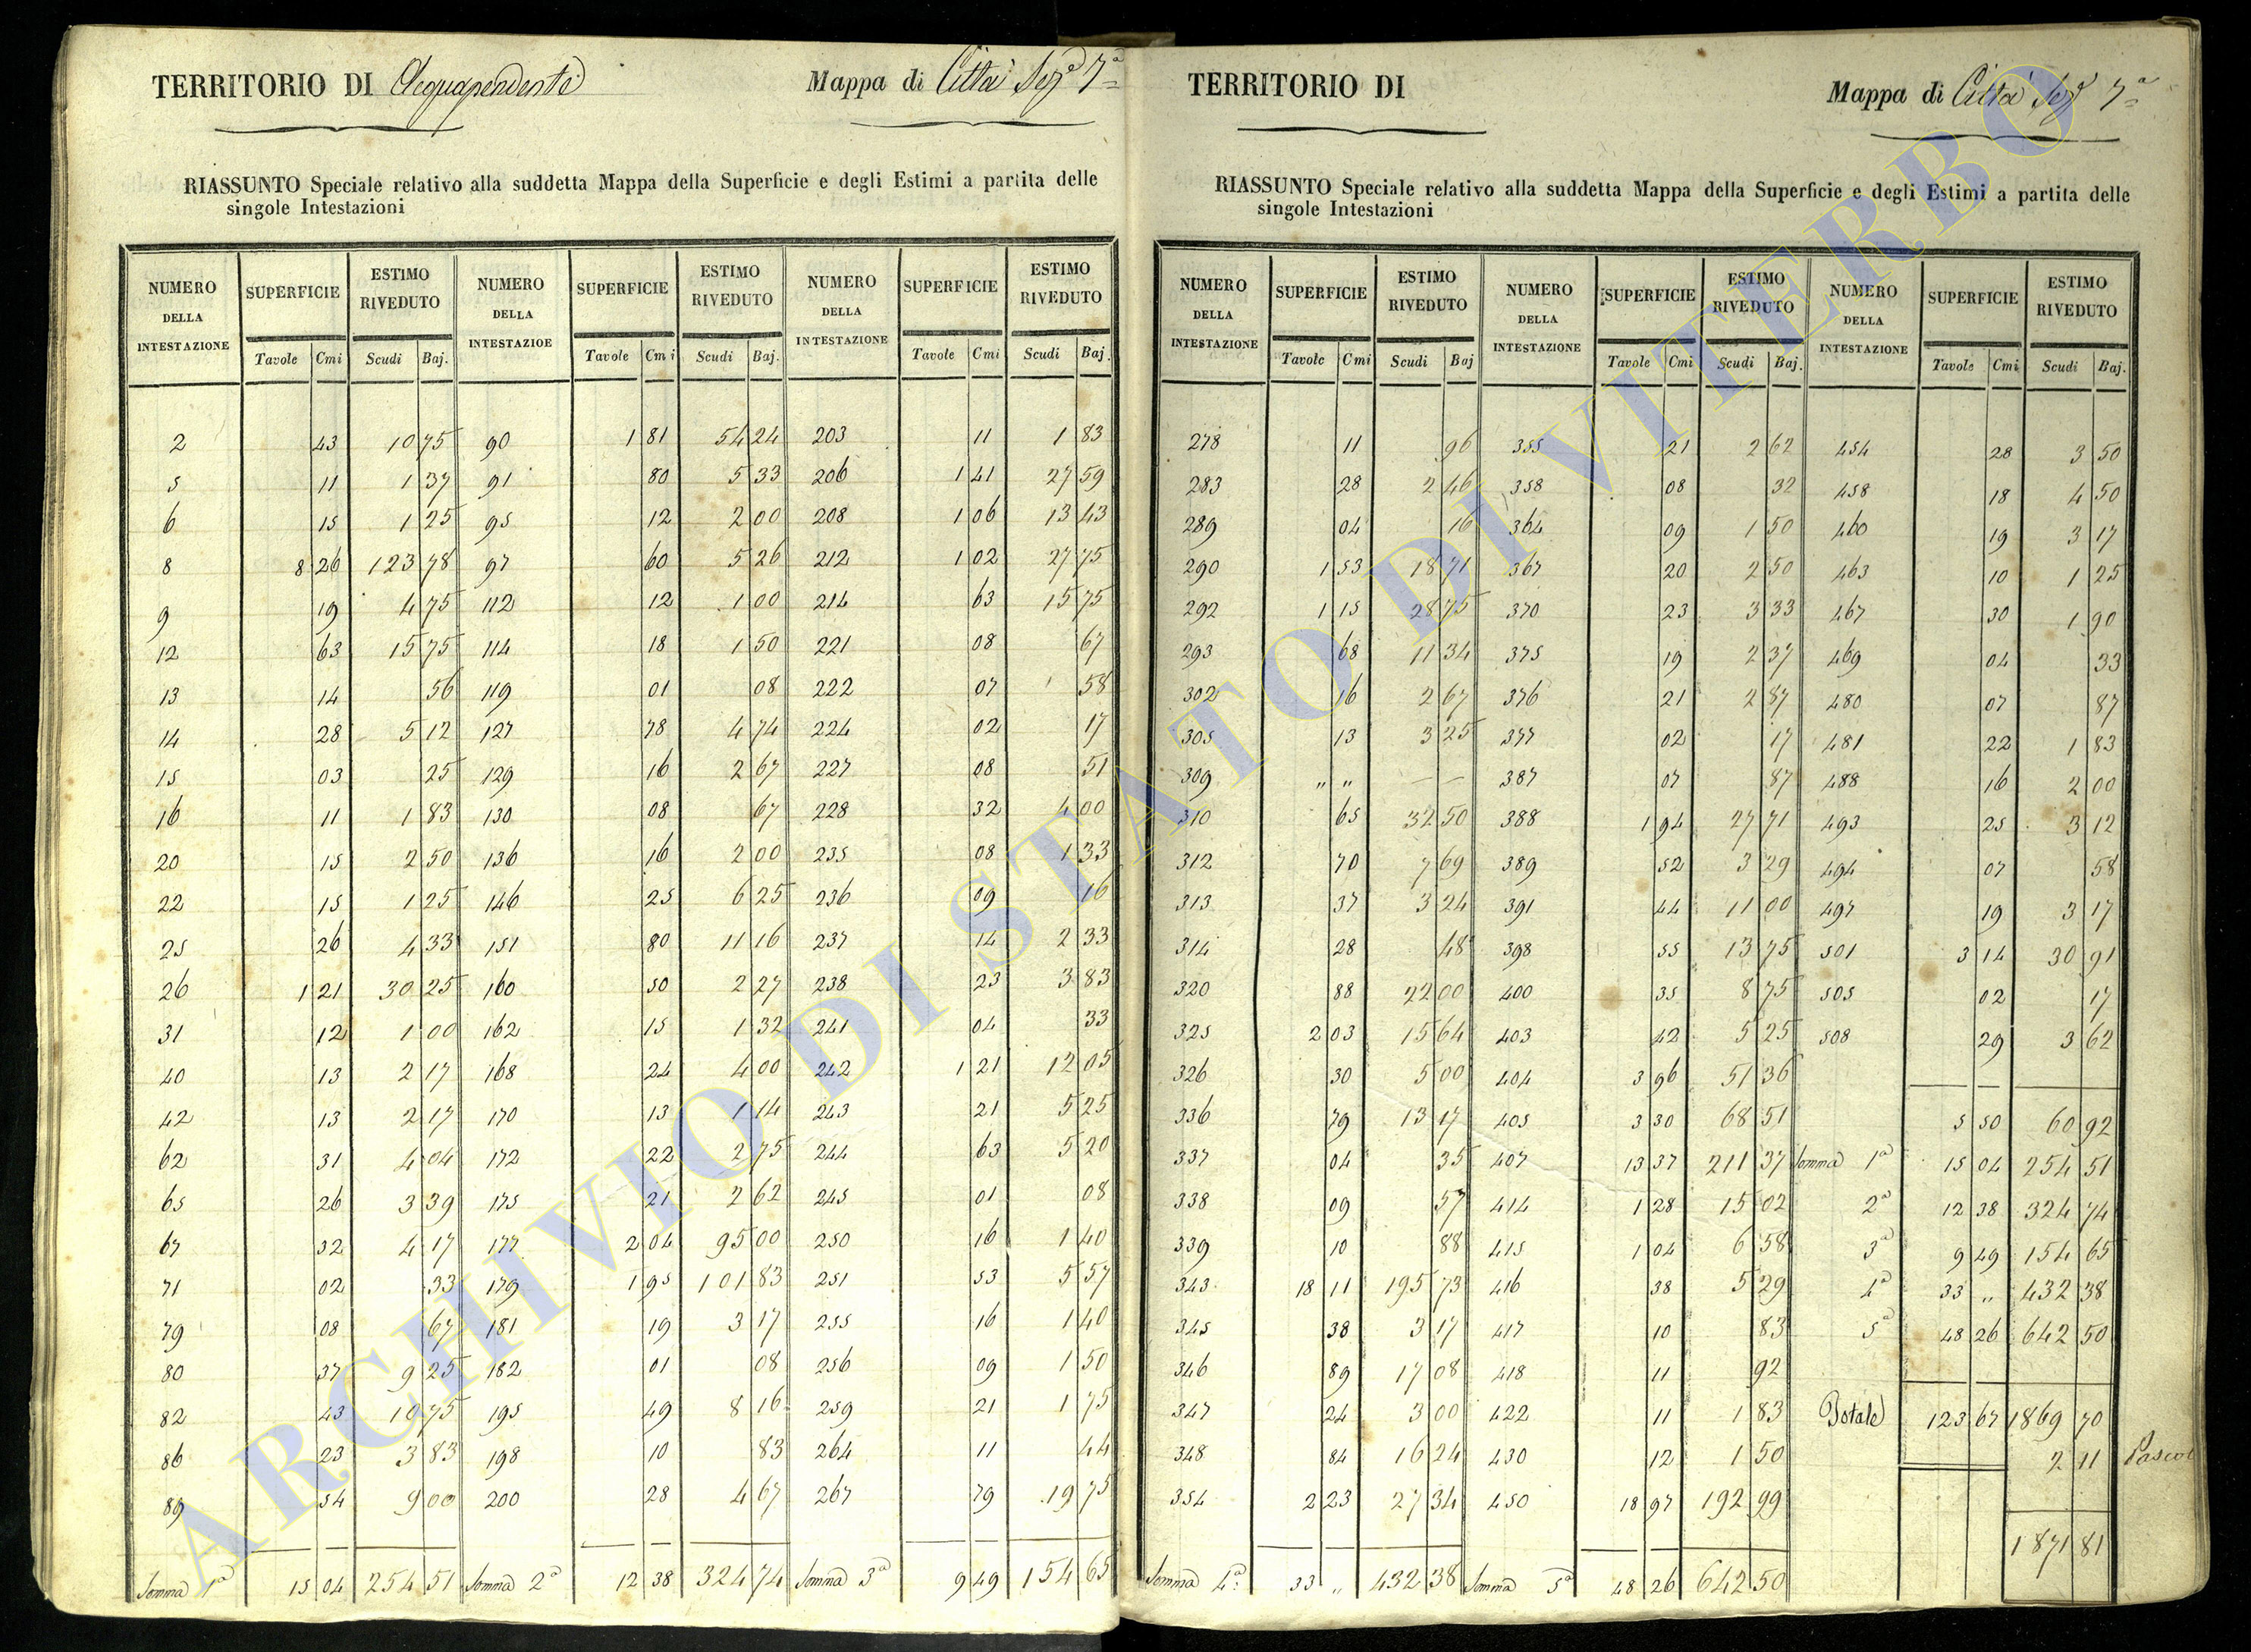 TERRITORIO DI Acquapendente Mappa di Città Sez.e 7ª
RIASSUNTO Speciale relativo alla suddetta Mappa della Superficie e degli Estimi a partita delle
singole Intestazioni
NUMERO DELLA INTESTAZIONE SUPERFICIE ESTIMO RIVEDUTO NUMERO DELLA INTESTAZIOE SUPERFICIE ESTIMO RIVEDUTO NUMERO DELLA INTESTAZIONE SUPERFICIE ESTIMO RIVEDUTO
Tavole Cmi Scudi Baj. Tavole Cmi Scudi Baj. Tavole Cmi Scudi Baj.
2 43 10 75 90 1 81 54 24 203 11 1 83
5 11 1 37 91 80 5 33 206 1 41 27 59
6 15 1 25 95 12 2 00 208 1 06 13 43
8 8 26 123 78 97 60 5 26 212 1 02 27 75
9 19 4 75 112 12 1 00 214 63 15 75
12 63 15 75 114 18 1 50 221 08 67
13 14 56 119 01 08 222 07 58
14 28 5 12 127 78 4 74 224 02 17
15 03 25 129 16 2 67 227 08 51
16 11 1 83 130 08 67 228 32 4 00
20 15 2 50 136 16 2 00 235 08 1 33
22 15 1 25 146 25 6 25 236 09 16
25 26 4 33 151 80 11 16 237 14 2 33
26 1 21 30 25 160 50 2 27 238 23 3 83
31 12 1 00 162 15 1 32 241 04 33
40 13 2 17 168 24 4 00 242 1 21 12 05
42 13 2 17 170 13 1 14 243 21 5 25
62 31 4 04 172 22 2 75 244 63 5 20
65 26 3 39 175 21 2 62 245 01 08
67 32 4 17 177 2 04 95 00 250 16 1 40
71 02 33 179 1 95 101 83 251 53 5 57
79 08 67 181 19 3 17 255 16 1 40
80 37 9 25 182 01 08 256 09 1 50
82 43 10 75 195 49 8 16 259 21 1 75
86 23 3 83 198 10 83 264 11 44
89 54 9 00 200 28 4 67 267 79 19 75
Somma 1ª 15 04 254 51 Somma 2ª 12 38 324 74 Somma 3ª 9 49 154 65
TERRITORIO DI Mappa di Città Sez.e 7ª
RIASSUNTO Speciale relativo alla suddetta Mappa della Superficie e degli Estimi a partita delle
singole Intestazioni
NUMERO DELLA INTESTAZIONE SUPERFICIE ESTIMO RIVEDUTO NUMERO DELLA INTESTAZIONE SUPERFICIE ESTIMO RIVEDUTO NUMERO DELLA INTESTAZIONE SUPERFICIE ESTIMO RIVEDUTO
Tavole Cmi Scudi Baj Tavole Cmi Scudi Baj. Tavole Cmi Scudi Baj.
278 11 96 355 21 2 62 454 28 3 50
283 28 2 46 358 08 32 458 18 4 50
289 04 16 364 09 1 50 460 19 3 17
290 1 53 18 71 367 20 2 50 463 10 1 25
292 1 15 28 75 370 23 3 33 467 30 1 90
293 68 11 34 375 19 2 37 469 04 33
302 16 2 67 376 21 2 87 480 07 87
305 13 3 25 377 02 17 481 22 1 83
309 „ „ — — 387 07 87 488 16 2 00
310 65 32 50 388 1 94 27 71 493 25 3 12
312 70 7 69 389 52 3 29 494 07 58
313 37 3 24 391 44 11 00 497 19 3 17
314 28 48 398 55 13 75 501 3 14 30 91
320 88 22 00 400 35 8 75 505 02 17
325 2 03 15 64 403 42 5 25 508 29 3 62
326 30 5 00 404 3 96 51 36
336 79 13 17 405 3 30 68 51 5 50 60 92
337 04 35 407 13 37 211 37 Somma 1ª 15 04 254 51
338 09 57 414 1 28 15 02 2ª 12 38 324 74
339 10 88 415 1 04 6 58 3ª 9 49 154 65
343 18 11 195 73 416 38 5 29 4ª 33 „ 432 38
345 38 3 17 417 10 83 5ª 48 26 642 50
346 89 17 08 418 11 92
347 24 3 00 422 11 1 83 Totale 123 67 1869 70
348 84 16 24 430 12 1 50 2 11 Pascol
354 2 23 27 34 450 18 97 192 99
1871 81
Somma 4ª 33 „ 432 38 Somma 5ª 48 26 642 50
ARCHIVIO DI STATO DI VITERBO